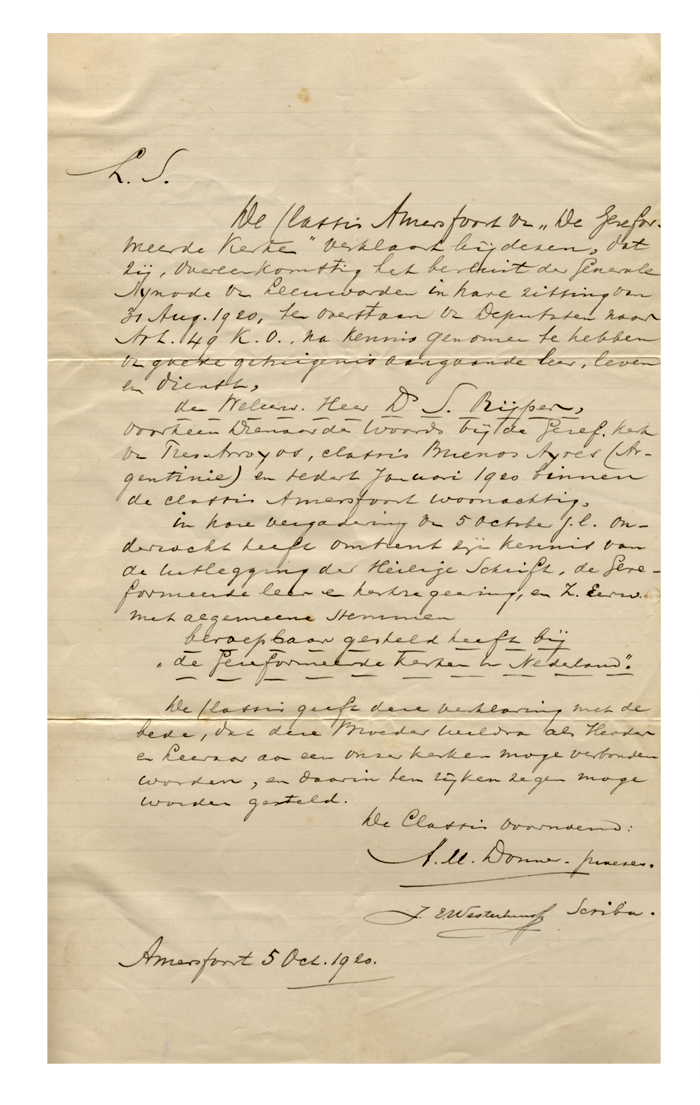 L. S.
De Classis Amersfoort v. "De Gerefor-
meerde Kerken" verklaart bij dezen, dat
zij, overeenkomstig het besluit der Generale
Synode v. Leeuwarden in hare zitting van
31 Aug. 1920, ten overstaan v. Deputaten naar
Art. 49 K. O., na kennis genomen te hebben
v. goede getuigenis aangaande leer, leven
en dienst,
den Weleerw. Heer Ds S. Rijper,
voorheen Dienaar des Woords bij de Geref. kerk
v. Tres Arroyos, classis Buenos Ayres (Ar-
gentinië) en sedert Januari 1920 binnen
de classis Amersfoort woonachtig,
in hare vergadering v. 5 October j.l. on-
derzocht heeft omtrent zijn kennis van
de uitlegging der Heilige Schrift, de Gere-
formeerde leer en kerkregeering, en Z. Eerw.
met algemeene stemmen
beroepbaar gesteld heeft bij
"de Gereformeerde Kerken in Nederland".
De Classis geeft deze verklaring met de
bede, dat deze Broeder weldra als Herder
en Leeraar aan een onzer kerken moge verbonden
worden, en daarin ten rijken zegen moge
worden gesteld.
De Classis voornoemd:
A. M. Donner. praeses.
J. E. Westerhuis Scriba.
Amersfoort 5 Oct. 1920.